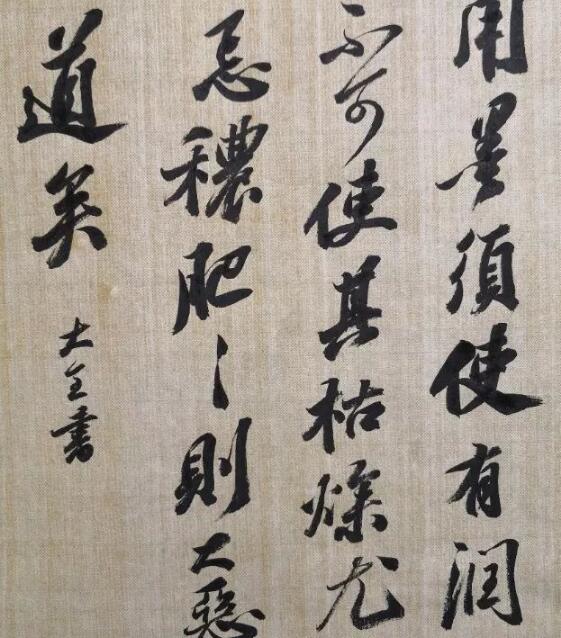 用墨須使有润
不可使其枯燥尤
忌穠肥〻則大惡
道矣
大全書